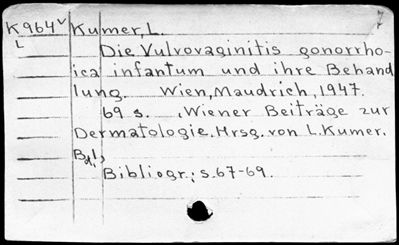 K964v Kumer, L.
L
Die Vulvovaginitis gonorrho-
ica infantum und ihre Behand
lung. Wien, Maudrich, 1947.
69 s. (Wiener Beiträge zur
Dermatologie. Hrsg. von L. Kumer.
Bd. 1)
Bibliogr.: s. 67-69.